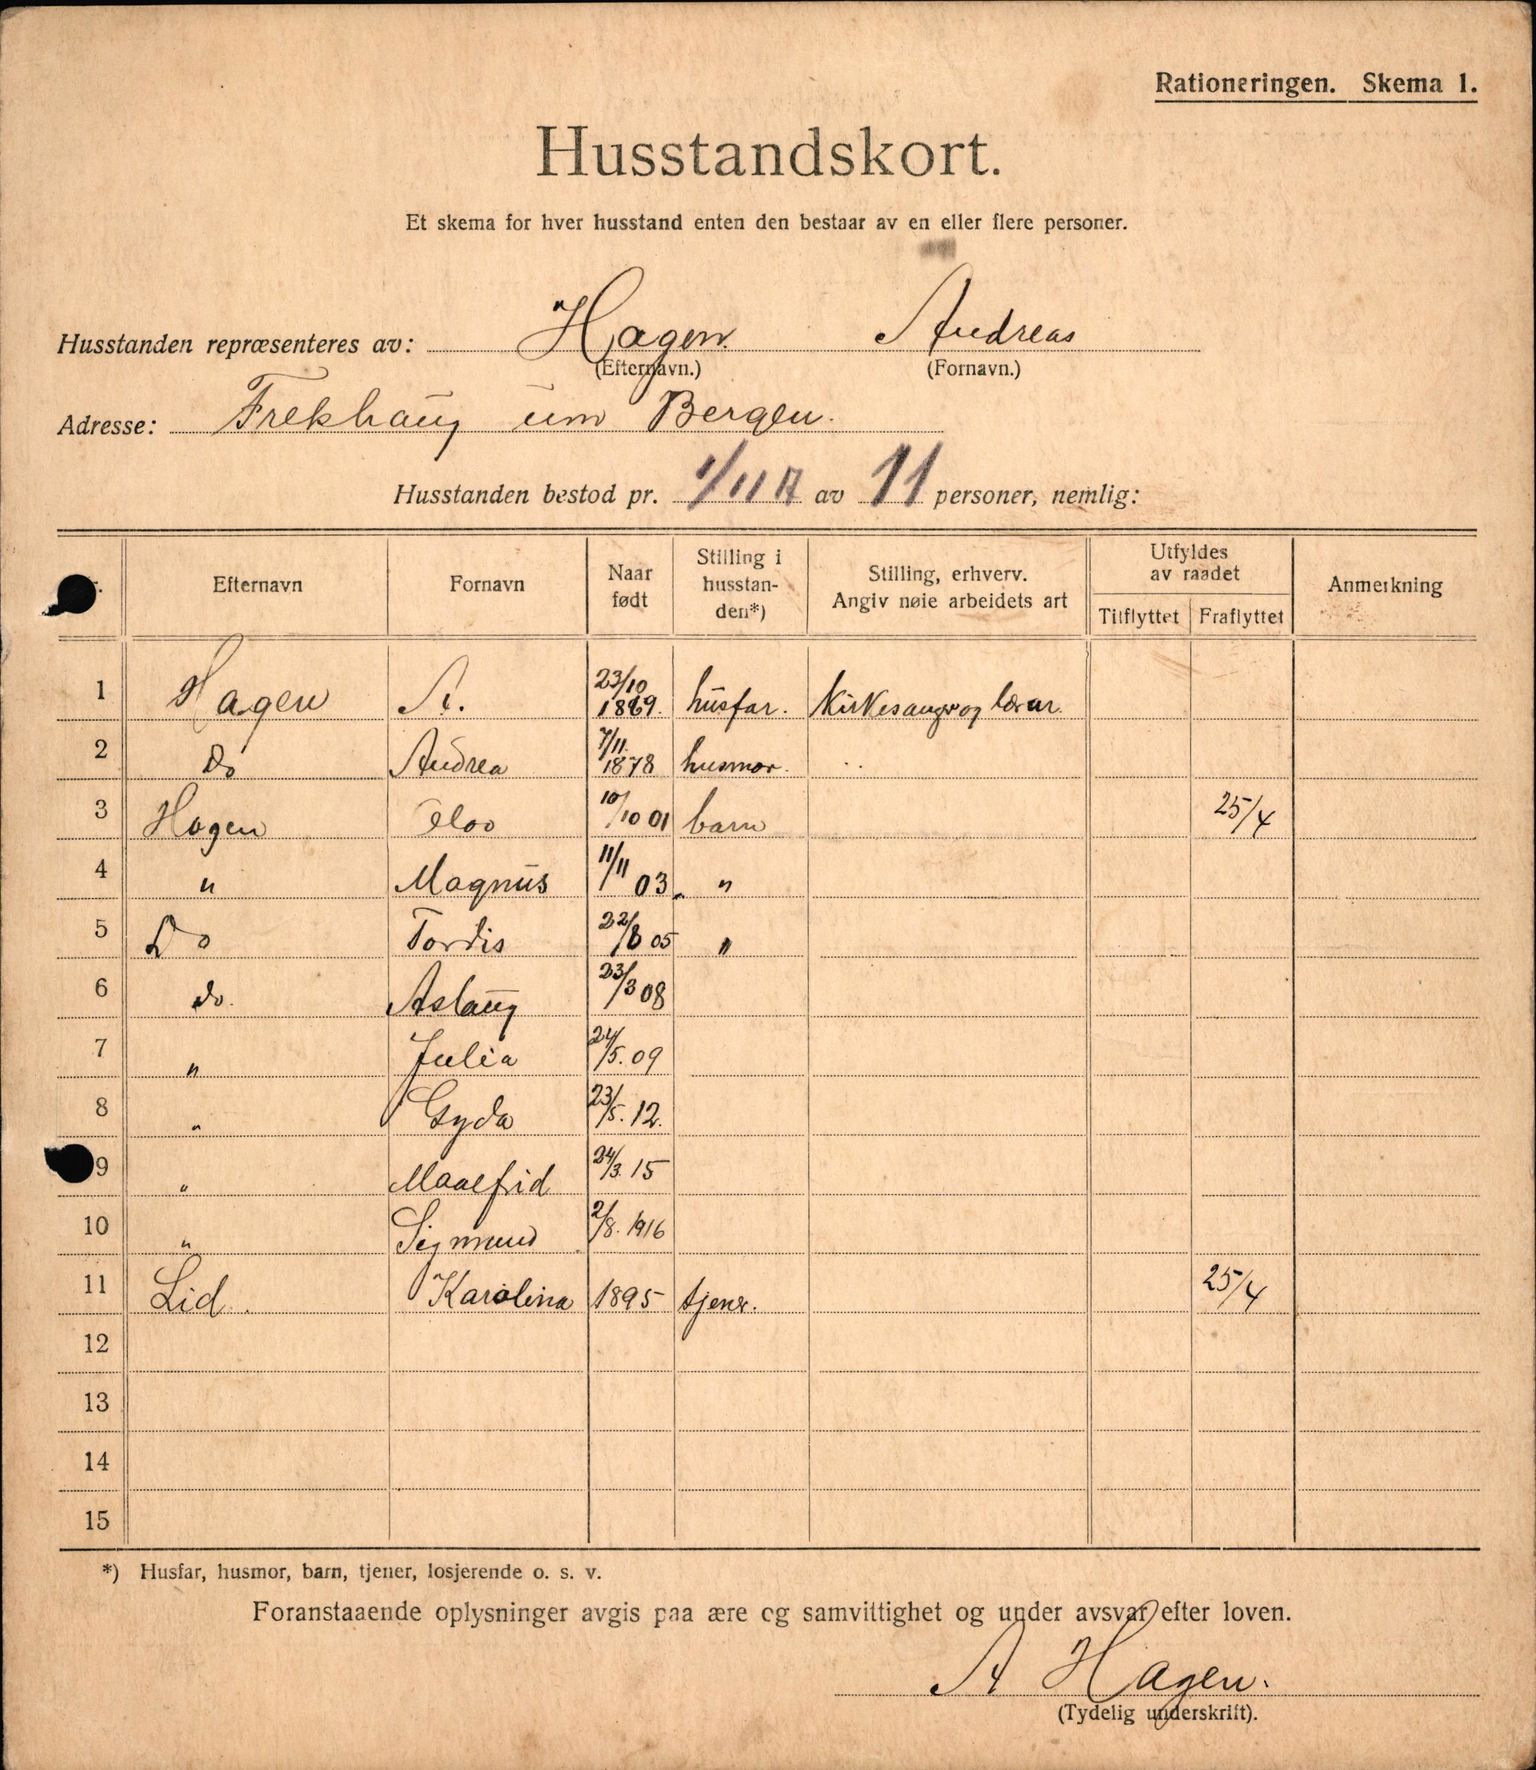 Rationeringen. Skema 1.
Husstandskort.
Et skema for hver husstand enten den bestaar av en eller flere personer.
Husstanden repræsenteres av: Hagen Andreas
(Efternavn.) (Fornavn.)
Adresse: Frekhaug um Bergen.
Husstanden bestod pr. 1/11 17 av 11 personer, nemlig:
Efternavn Fornavn Naar født Stilling i husstan-den*) Stilling, erhverv. Angiv nøie arbeidets art Utfyldes av raadet Tilflyttet Fraflyttet Anmerkning
1 Hagen A. 23/10 1869. husfar. Kirkesanger og lærar.
2 Do Andrea 7/11. 1878 husmor.
3 Hagen Olav 10/10 01 barn 25/4
4 " Magnus 11/11 03 "
5 Do Tordis 22/8 05 "
6 do. Aslaug 23/3 08
7 " Julia 24/5. 09
8 " Gyda 23/5. 12.
9 " Maalfrid 24/3. 15
10 " Sigmund 2/8. 1916
11 Lid. Karolina 1895 tjener. 25/4
12
13
14
15
*) Husfar, husmor, barn, tjener, losjerende o. s. v.
Foranstaaende oplysninger avgis paa ære og samvittighet og under avsvar efter loven.
A Hagen.
(Tydelig underskrift).